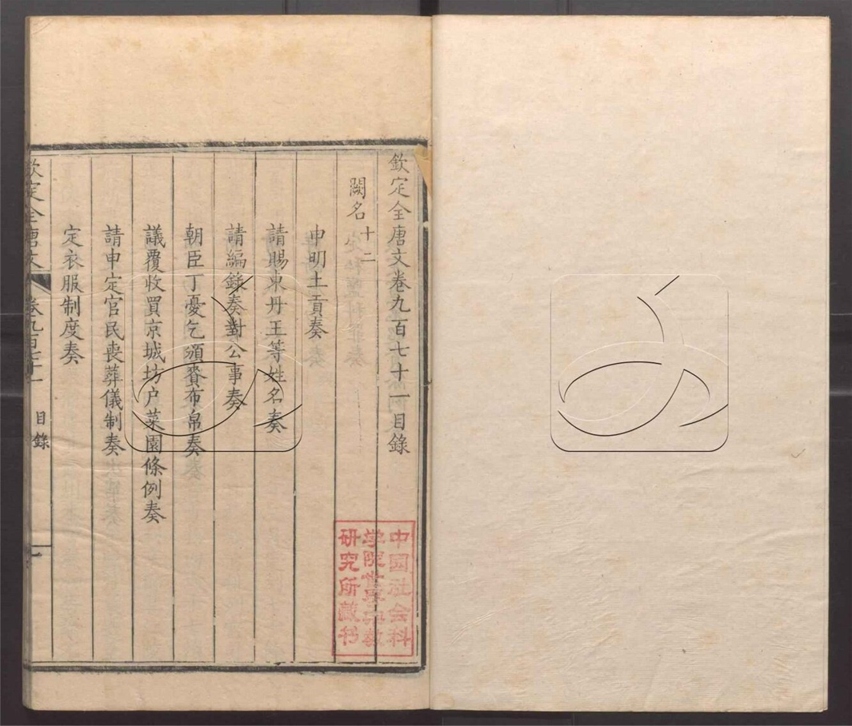 欽定全唐文卷九百七十一目錄
闕名十二
申明土貢奏
請賜東丹王等姓名奏
請編錄奏對公事奏
朝臣丁憂乞頒賚布帛奏
議覆收買京城坊戶菜園條例奏
請申定官民喪葬儀制奏
定衣服制度奏
欽定全唐文 卷九百七十一 目錄 一
中国社会科
学院世界宗教
研究所藏书